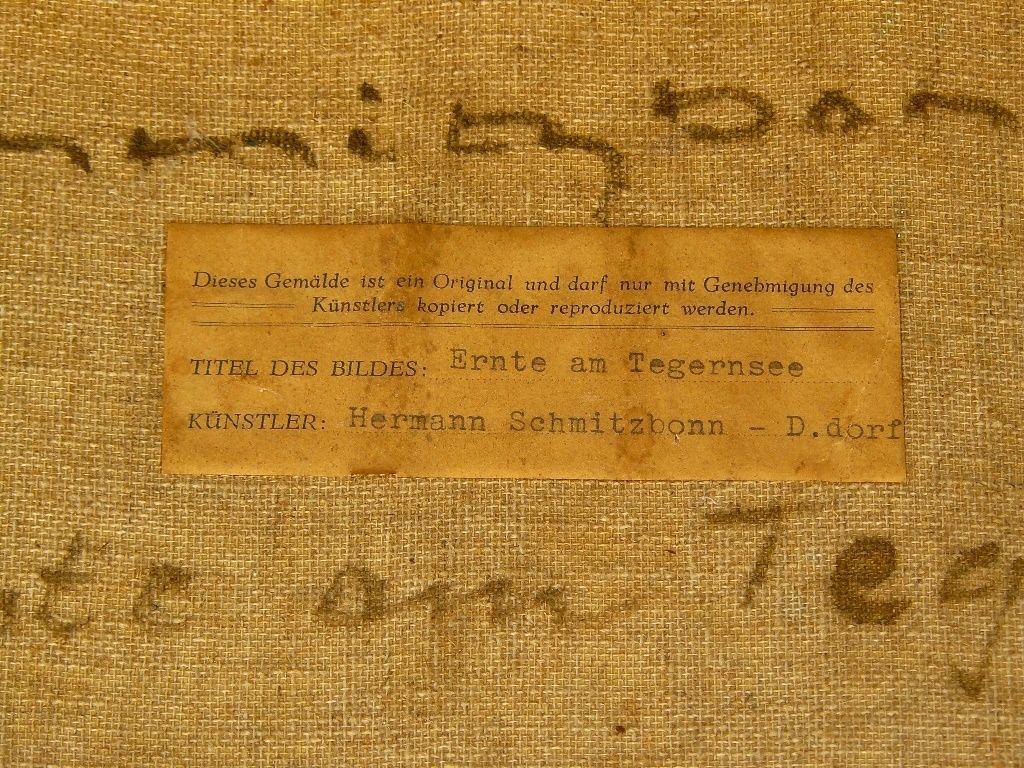 mitzbon
Dieses Gemälde ist ein Original und darf nur mit Genehmigung des
Künstlers kopiert oder reproduziert werden.
TITEL DES BILDES: Ernte am Tegernsee
KÜNSTLER: Hermann Schmitzbonn - D.dorf
te am Teg